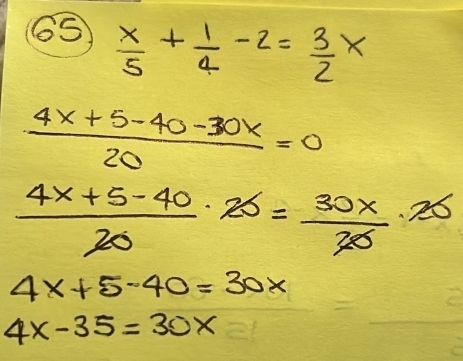 65) x/5 + 1/4 - 2 = 3/2 x
(4x + 5 - 40 - 30x)/20 = 0
(4x + 5 - 40)/20 · 20 = 30x/20 · 20
4x + 5 - 40 = 30x
4x - 35 = 30x